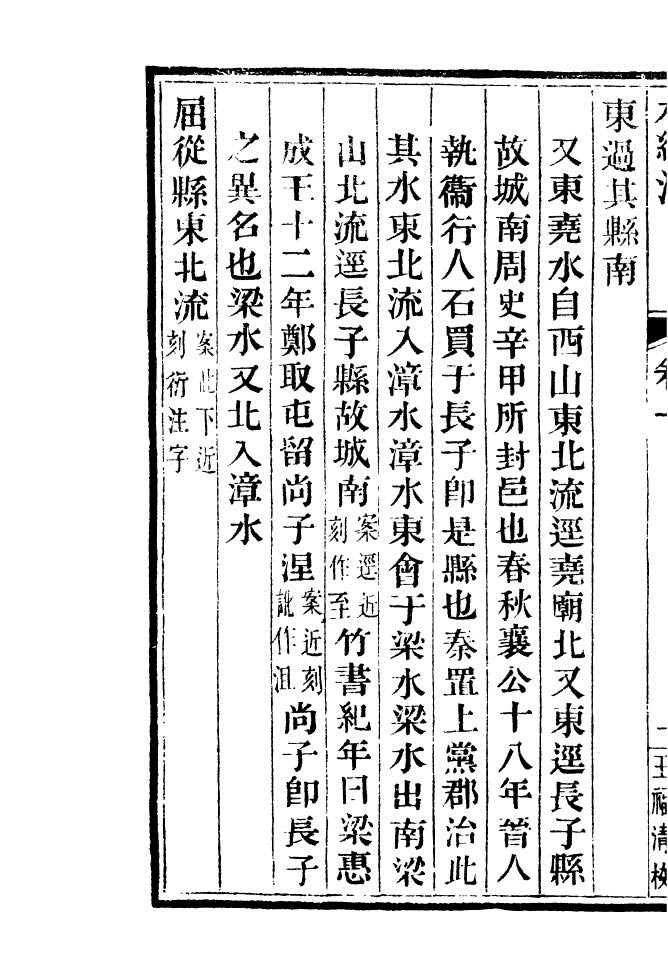 水經注 卷十 二 王福清校
東過其縣南
又東堯水自西山東北流逕堯廟北又東逕長子縣
故城南周史辛甲所封邑也春秋襄公十八年晉人
執衞行人石買于長子卽是縣也秦置上黨郡治此
其水東北流入漳水漳水東會于梁水梁水出南梁
山北流逕長子縣故城南案逕近刻作至竹書紀年曰梁惠
成王十二年鄭取屯留尚子涅案近刻訛作沮尚子卽長子
之異名也梁水又北入漳水
屆從縣東北流案此下近刻衍注字